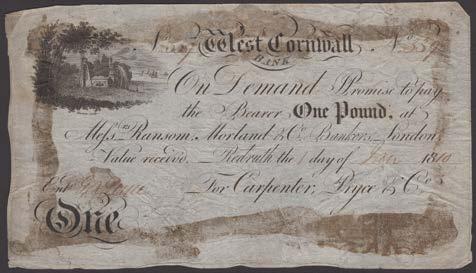 West Cornwall
BANK
On Demand Promise to pay
the Bearer One Pound, at
Messrs Ransom, Morland & Co. Bankers, London,
Value received. Redruth the 1 day of 1810
Entd For Carpenter, Pryce & Co.
One